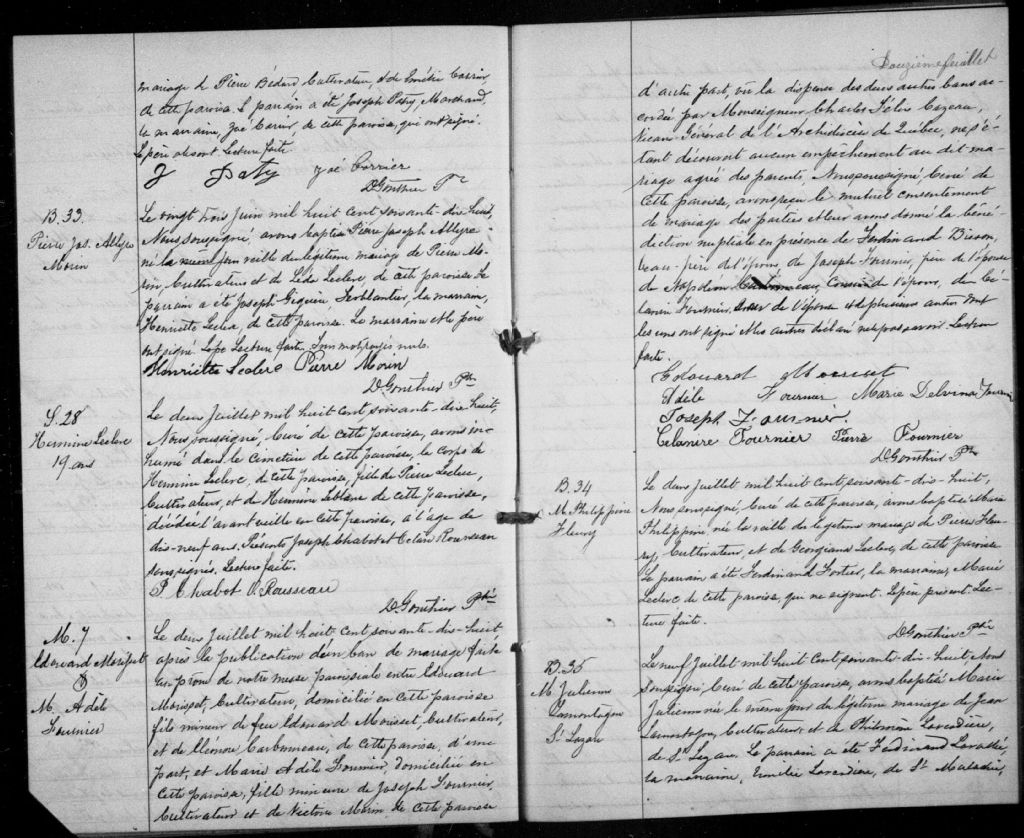 mariage de Pierre Bédard Cultivateur, & de Emélie Carrier
de cette paroisse. Le parrain a été Joseph Paty, Marchand,
la marraine, Zoé Carrier, de cette paroisse, qui ont signé.
Le père absent Lecture faite.
J Paty Zoé Carrier
D. Gonthier Ptre
B. 33.
Pierre Jos. Allyre
Morin
Le vingt trois Juin mil huit cent soixante-dix huit,
Nous soussigné, avons baptisé Pierre Joseph Allyre
né la veille du légitime mariage de Pierre Mo-
rin, Cultivateur et de Léda Leclerc de cette paroisse. Le
parrain a été Joseph Ferblantier, la marraine,
Henriette Leclerc, de cette paroisse. La marraine et le père
ont signé. Lecture faite. Trois mots rayés nuls.
Henriette Leclerc Pierre Morin
D. Gonthier Ptre
S. 28
Hermine Leclerc
19 ans
Le deux Juillet mil huit cent soixante-dix huit,
Nous, soussigné, Curé de cette paroisse, avons in-
humé dans le cimetière de cette paroisse, le corps de
Hermine Leclerc, de cette paroisse, fille de Pierre Leclerc,
Cultivateur, et de Hermine Leblanc de cette paroisse,
décédée l'avant veille en cette paroisse, à l'age de
dix-neuf ans. Présents Joseph Chabot et Rousseau
soussignés. Lecture faite.
J. Chabot O. Rousseau
D. Gonthier Ptre
M. 7
Edouard Morisset
&
M. Adèle
Fournier
Le deux Juillet mil huit cent soixante-dix-huit
après la publication d'un ban de mariage faite
au prone de notre messe paroissiale entre Edouard
Morisset, Cultivateur, domicilié en cette paroisse
fils mineur de feu Edouard Morisset, Cultivateur,
et de Eléonore Carbonneau, de cette paroisse, d'une
part, et Marie Adèle Fournier, domiciliée en
cette paroisse, fille mineure de Joseph Fournier,
Cultivateur et de Victoire Morin de cette paroisse
Douzième feuillet
d'autre part, vu la dispense des deux autres bans ac-
cordée par Monseigneur Charles Félix Cazeau,
Vicaire Général de l'Archidiocèse de Québec, ne s'é-
tant découvert aucun empêchement au dit ma-
riage agréé des parents, Nous soussigné, Curé de
cette paroisse, avons reçu le mutuel consentement
de mariage des parties et leur avons donné la béné-
diction nuptiale en présence de Ferdinand Bisson,
beau-père de l'époux, de Joseph Fournier, père de l'épouse
de Napoléon Carbonneau, Cousin de l'époux, de Cé-
lanire Fournier, soeur de l'épouse et de plusieurs autres dont
les uns ont signé & les autres déclaré ne pas savoir. Lecture
faite.
Edouard Morisset
Adèle Fournier Marie Delvina Fournier
Joseph Fournier
Celanire Fournier Pierre Fournier
D. Gonthier Ptre
B. 34
M. Philippine
Fleury
Le deux Juillet mil huit cent soixante-dix-huit,
Nous soussigné, Curé de cette paroisse, avons baptisé Marie
Philippine, née la veille du légitime mariage de Pierre Fleu-
ry, Cultivateur, et de Georgiana Leclerc, de cette paroisse
Le parrain a été Ferdinand Fortier, la marraine, Marie
Leclerc de cette paroisse, qui ne signent. Le père présent. Lec-
ture faite.
D. Gonthier Ptre
B. 35
M. Julienne
Lamontagne
St Lazare
Le neuf Juillet mil huit cent soixante-dix-huit, Nous
Soussigné Curé de cette paroisse, avons baptisé Marie
Julienne née le même jour du légitime mariage de Jean
Lamontagne, Cultivateur, et de Philomène Laverdière,
de St Lazare. Le parrain a été Ferdinand Lavallée,
la marraine, Emélie Laverdière, de St Malachie,